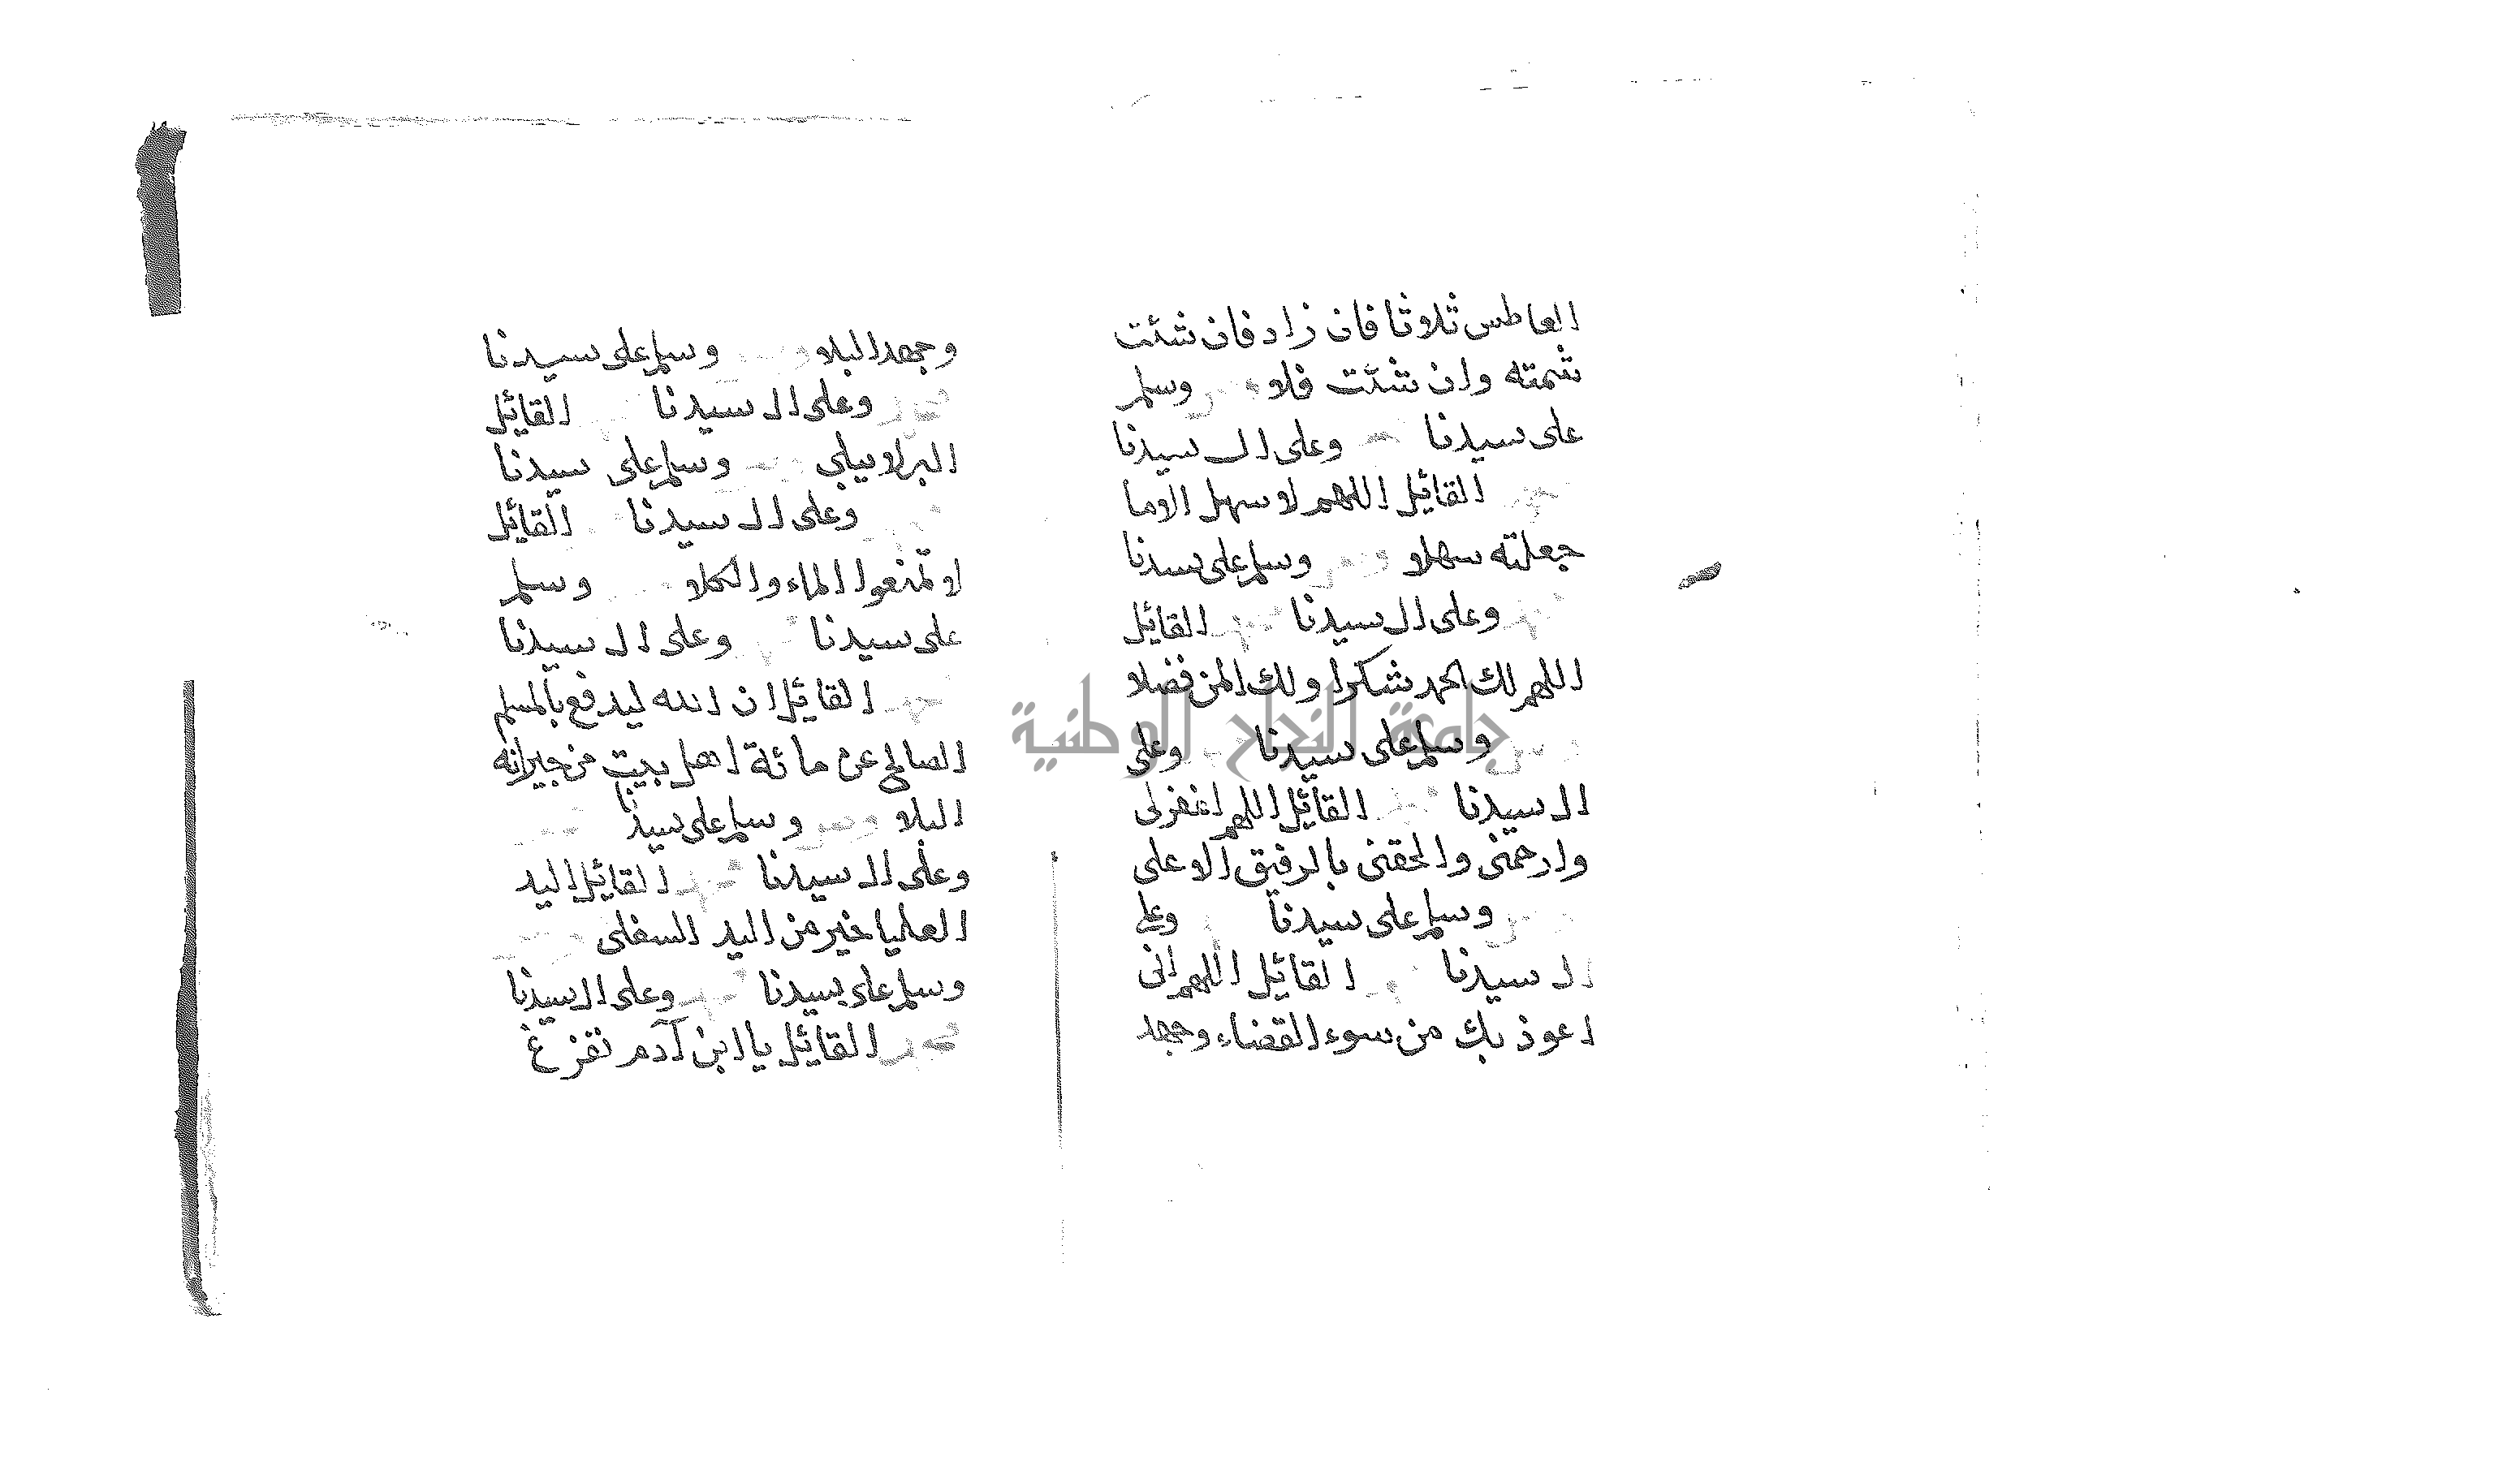 العاطس ثلاثا فان زاد فان شئت
شمته وان شئت فلا وسلم
على سيدنا وعلى ال سيدنا
القائل اللهم لا سهل الا ما
جعلته سهلا وسلم على سيدنا
وعلى ال سيدنا القائل
اللهم لك الحمد شكرا ولك المن فضلا
وسلم على سيدنا وعلى
ال سيدنا القائل اللهم اغفر لى
وارحمنى والحقنى بالرفيق الاعلى
وسلم على سيدنا وعلى
ال سيدنا القائل اللهم انى
اعوذ بك من سوء القضاء وجهد
وجهد البلاء وسلم على سيدنا
وعلى ال سيدنا القائل
البر لا يبلى وسلم على سيدنا
وعلى ال سيدنا القائل
لا تمنعوا الماء والكلا وسلم
على سيدنا وعلى ال سيدنا
القائل ان الله ليدفع بالمسلم
الصالح عن مائة اهل بيت من جيرانه
البلا وسلم على سيدنا
وعلى ال سيدنا القائل اليد
العليا خير من اليد السفلى
وسلم على سيدنا وعلى ال سيدنا
القائل يا ابن آدم تفرغ
جامعة النجاح الوطنية